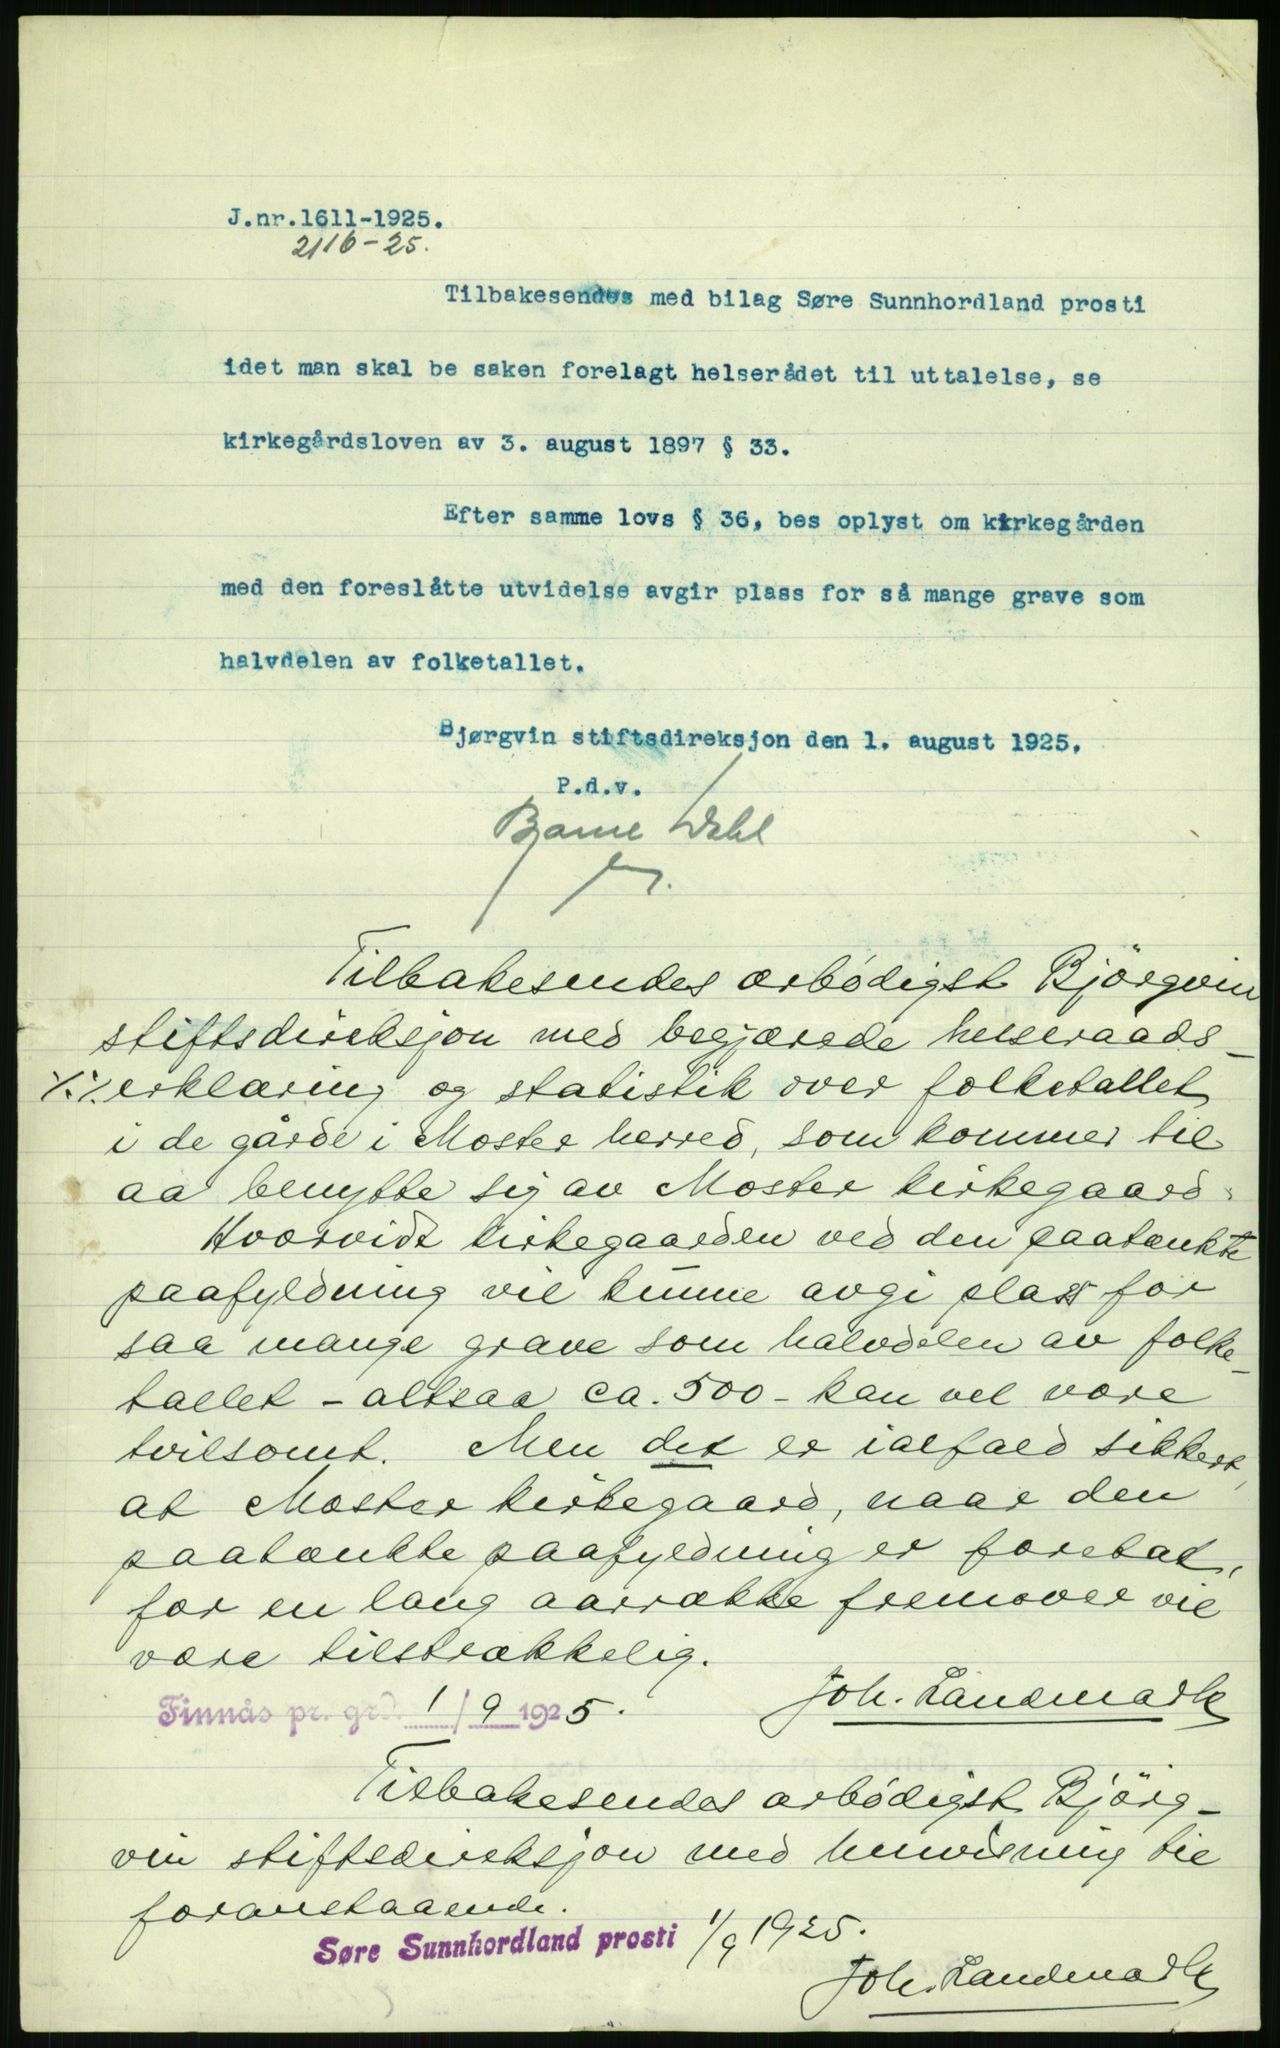 J.nr.1611-1925.
2116-25.
Tilbakesendes med bilag Søre Sunnhordland prosti
idet man skal be saken forelagt helserådet til uttalelse, se
kirkegårdsloven av 3. august 1897 § 33.
Efter samme lovs § 36, bes oplyst om kirkegården
med den foreslåtte utvidelse avgir plass for så mange grave som
halvdelen av folketallet.
Bjørgvin stiftsdireksjon den 1. august 1925.
P.d.v.
Bjarne Dahl
Tilbakesendes ærbødigst Bjørgvin
stiftsdireksjon med begjærede helseraads-
erklæring og statistik over folketallet
i de gårde i Moster herred, som kommer til
aa benytte sig av Moster kirkegaard.
Hvorvidt kirkegaarden ved den paatænkte
paafyldning vil kunne avgi plass for
saa mange grave som halvdelen av folke-
tallet - altsaa ca. 500 - kan vel være
tvilsomt. Men det er ialfald sikkert,
at Moster kirkegaard, naar den
paatænkte paafyldning er foretat,
for en lang aarrække fremover vil
være tilstrækkelig.
Finnås pr. grd. 1/9 1925.
Joh. Landmark
Tilbakesendes ærbødigst Bjørg-
vin stiftsdireksjon med henvisning til
foranstaaende.
Søre Sunnhordland prosti 1/9 1925.
Joh. Landmark